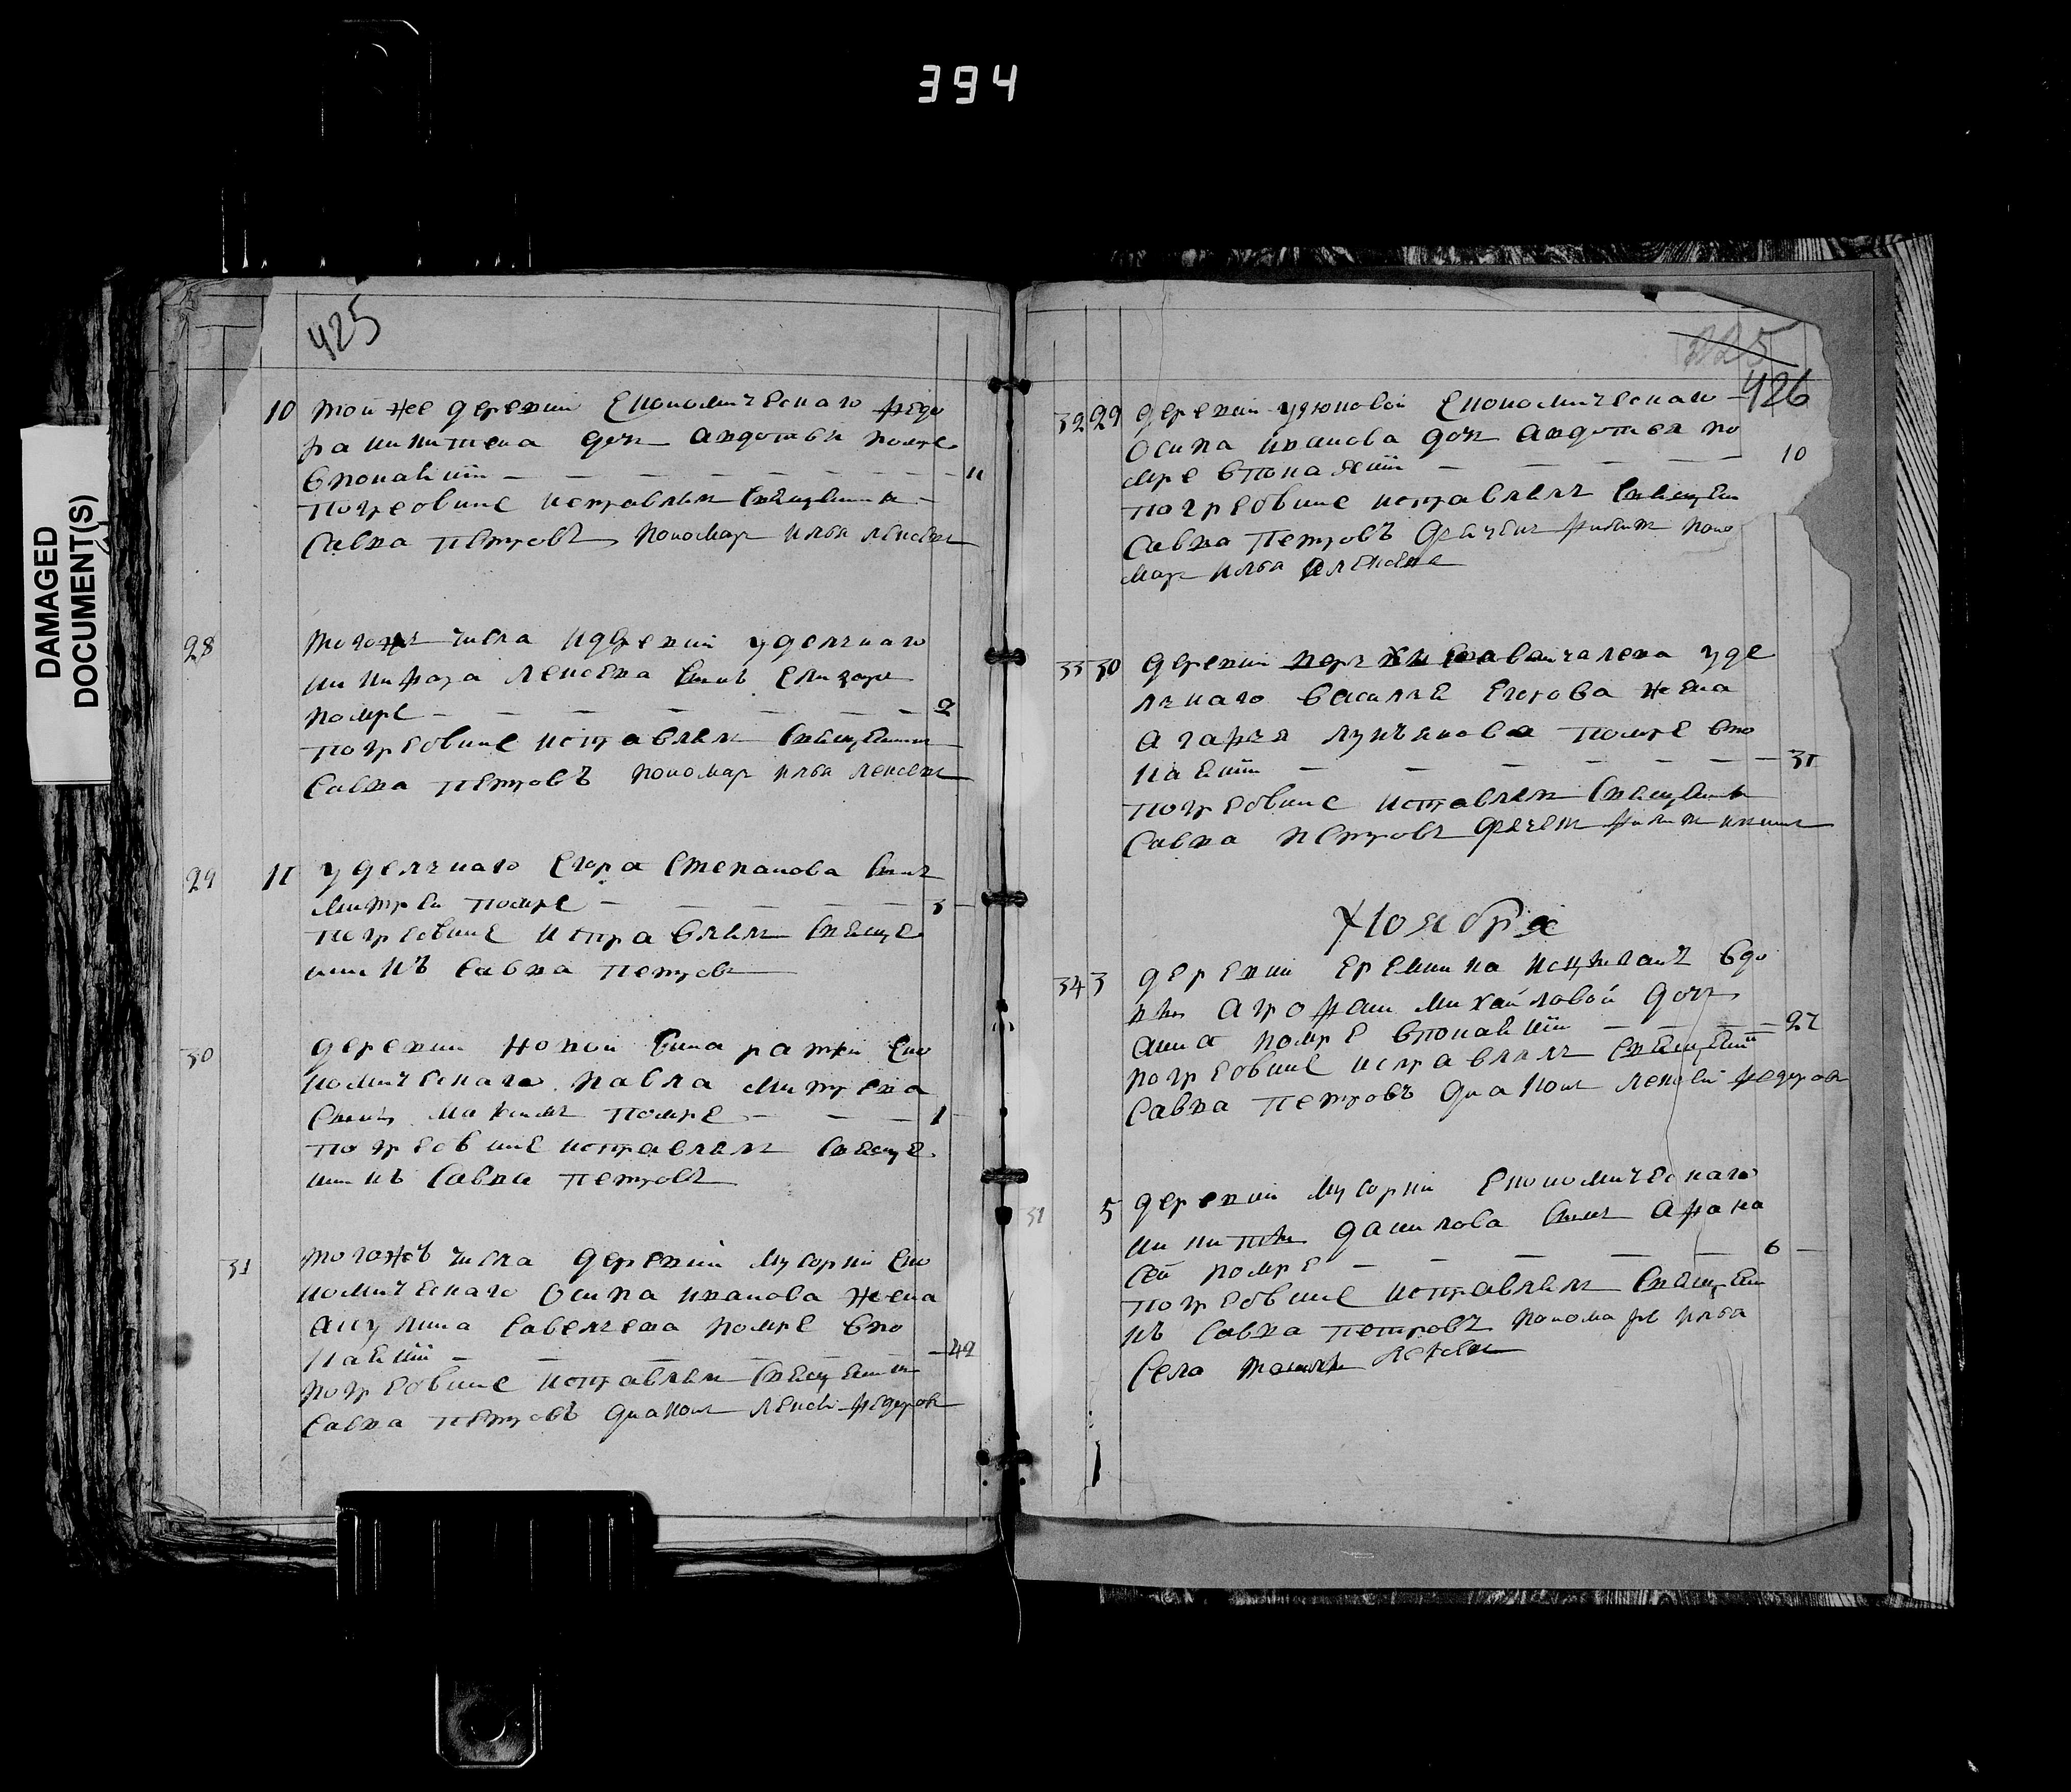 394
DAMAGED
DOCUMENT(S)
425
10 той же деревни Економическаго Федо
ра Никитева доч Авдотья помре
в покаянии — 11
погребение исправлял священник
Савва Петровъ пономар Илья
28 того ж числа и деревни удельнаго
Никифора сынъ Елизаръ
помре — 2
погребение исправлял священник
Савва Петровъ пономар Илья
29 11 удельнаго Егора Степанова сын
Митрей помре — 3
погребение исправлял священ
никъ Савва Петровъ
30 деревни Новой Еко
номическаго Павла Митрева
сынъ Максимъ помре — 1
погребение исправлял священ
никъ Савва Петровъ
31 того жъ числа деревни Мусорки Еко
номическаго Осипа Иванова жена
Акулина Савельева помре в по
каянии — 42
погребение исправлял священник
Савва Петровъ диакон Федоров
325
426
32 29 деревни Удюновой Економическаго
Осипа Иванова доч Авдотья по
мре в покаянии — 10
погребение исправлял священ
Савва Петровъ Филип поно
мар Илья
33 30 деревни уде
льнаго Василья Егорова жена
Агафья Лукъянова помре в по
каянии — 31
погребение исправлял священник
Савва Петровъ Филип
Ноября
34 3 деревни Еремкина вдо
вы Агрофени Михайловой доч
Анна помре в покаянии — 27
погребение исправлял священник
Савва Петровъ диакон Федоров
31 5 деревни Мусорки Економическаго
Никиты Данилова сынъ Афана
сей помре — 6
погребение исправлял священ
къ Савва Петровъ пономарь Илья
села